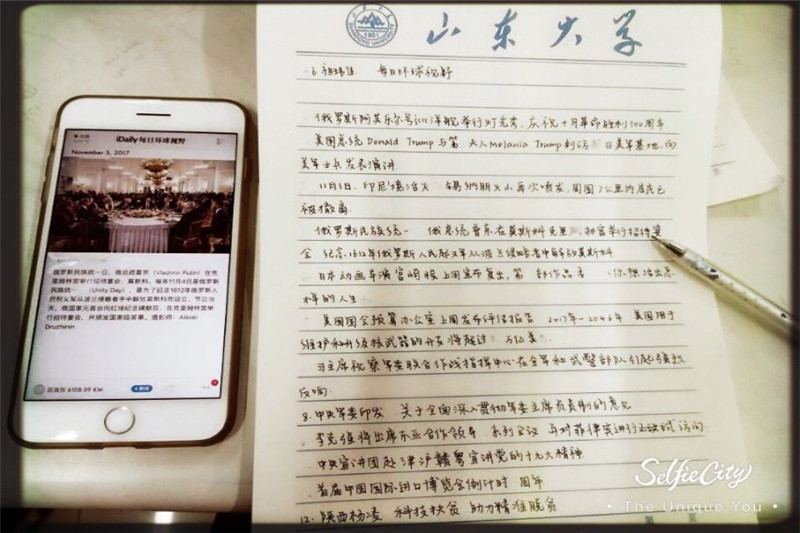 iDaily 每日环球视野
November 5, 2017
俄罗斯民族统一日，俄总统普京 (Vladimir Putin) 在克
里姆林宫举行招待宴会，莫斯科。每年11月4日是俄罗斯
民族统一日 (Unity Day)，是为了纪念1612年俄罗斯人
民和义军从波兰侵略者手中解放莫斯科而设立。节日当
天，俄国家元首会向红场纪念碑献花，在克里姆林宫举
行招待宴会，并颁发国家级奖章。摄影师：Alexei
Druzhinin
距离我 6108.09 KM
山东大学
SHANDONG UNIVERSITY
1901
每日环球视野
俄罗斯阿芙乐尔号巡洋舰举行灯光秀，庆祝十月革命胜利100周年
美国总统 Donald Trump 与第 夫人 Melania Trump 到访 日美军基地，向
美军士兵发表演讲
11月5日，印尼 火山再次喷发，周围7公里内居民已
被撤离
俄罗斯民族统一 俄总统普京在莫斯科克里 林宫举行招待宴
会 纪念1612年俄罗斯人民起义军从波兰侵略者中解放莫斯科
日本动画导演宫崎骏上周宣布复出，第 部作品名 你想活出怎
样的人生
美国国会预算办公室上周发布评估报告 2017年-2046年 美国用于
维护和升级核武器的开支将超过 万亿美
习主席视察军委联合作战指挥中心在全军和武警部队引起强烈
反响
8. 中央军委印发 关于全面深入贯彻军委主席负责制的意见
李克强将出席东亚合作领导 系列会议 并对菲律宾进行正式访问
中央宣讲团赴津沪赣粤宣讲党的十九大精神
首届中国国际进口博览会倒计时 周年
12. 陕西杨凌 科技扶贫 助力精准脱贫
第 页
SelfieCity
• The Unique You •